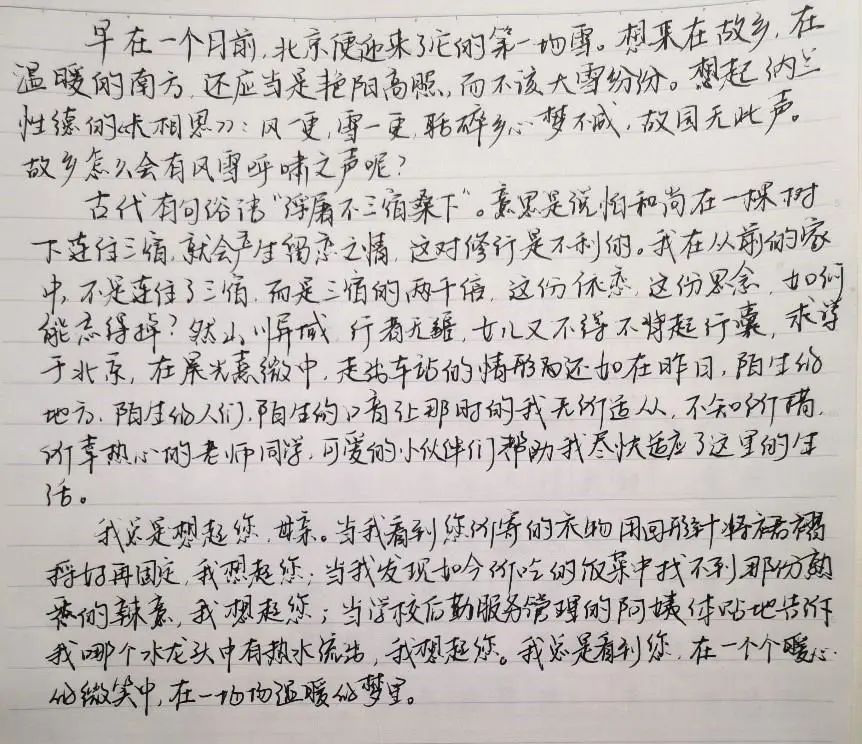 早在一个月前,北京便迎来了它的第一场雪。想来在故乡,在
温暖的南方,还应当是艳阳高照,而不该大雪纷纷。想起纳兰
性德的《长相思》:风一更,雪一更,聒碎乡心梦不成,故园无此声。
故乡怎么会有风雪呼啸之声呢?
古代有句俗语“浮屠不三宿桑下”。意思是说怕和尚在一棵树
下连住三宿,就会产生留恋之情,这对修行是不利的。我在从前的家
中,不是连住了三宿,而是三宿的两千倍,这份依恋,这份思念,如何
能忘得掉?然山川异域,行者无疆,女儿又不得不背起行囊,求学
于北京,在晨光熹微中,走出车站的情形而还如在昨日,陌生的
地方,陌生的人们,陌生的口音让那时的我无所适从,不知所措,
所幸热心的老师同学,可爱的小伙伴们帮助我尽快适应了这里的生
活。
我总是想起您,母亲。当我看到您所寄的衣物用回形针将裙褶
捋好再固定,我想起您;当我发现如今所吃的饭菜中找不到那份熟
悉的辣意,我想起您;当学校后勤服务管理的阿姨体贴地告诉
我哪个水龙头中有热水流出,我想起您。我总是看到您,在一个个暖心
的微笑中,在一场场温暖的梦里。